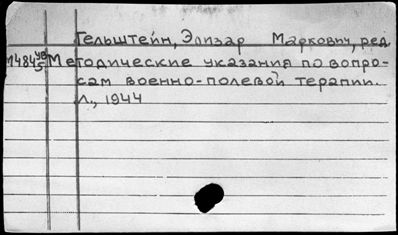 Гельштейн, Элизар Маркович, ред.
Методические указания по вопро-
сам военно-полевой терапии.
Л., 1944